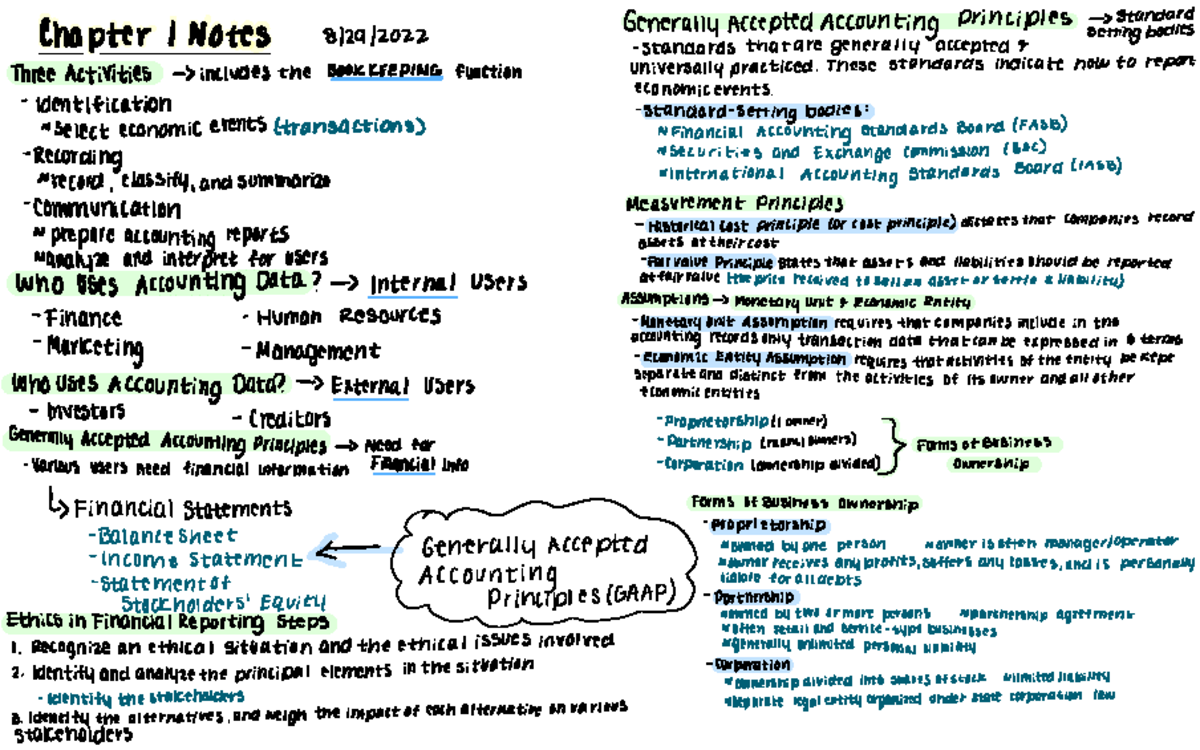 Chapter 1 Notes 8/29/2022
Three Activities → includes the BOOKKEEPING function
- Identification
*select economic events (transactions)
- Recording
*record, classify, and summarize
- Communication
* prepare accounting reports
*analyze and interpret for users
Who Uses Accounting Data? → Internal Users
- Finance - Human Resources
- Marketing - Management
Who Uses Accounting Data? → External Users
- Investors - Creditors
Generally Accepted Accounting Principles → Need for
Financial Info
- Various users need financial information
↳ Financial Statements
- Balance Sheet
- Income Statement
- Statement of
Stockholders' Equity
Generally Accepted
Accounting
Principles (GAAP)
Ethics in Financial Reporting Steps
1. Recognize an ethical situation and the ethical issues involved
2. Identify and analyze the principal elements in the situation
- Identify the stakeholders
3. Identify the alternatives, and weigh the impact of each alternative on various
stakeholders
Generally Accepted Accounting Principles → Standard
Setting bodies
- Standards that are generally accepted &
universally practiced. These standards indicate how to report
economic events.
- Standard-Setting bodies:
*Financial Accounting Standards Board (FASB)
*Securities and Exchange Commission (SEC)
*International Accounting Standards Board (IASB)
Measurement Principles
- Historical Cost principle (or cost principle) dictates that companies record
assets at their cost
- Fair value Principle states that assets and liabilities should be reported
at fair value (the price received to sell an asset or settle a liability)
Assumptions → Monetary Unit & Economic Entity
- Monetary Unit Assumption requires that companies include in the
accounting records only transaction data that can be expressed in $ terms
- Economic Entity Assumption requires that activities of the entity be kept
separate and distinct from the activities of its owner and all other
economic entities
- Proprietorship (1 owner)
- Partnership (many owners)
- Corporation (ownership divided)
Forms of Business
Ownership
Forms of Business Ownership
- Proprietorship
*owned by one person *owner is often manager/operator
*owner receives any profits, suffers any losses, and is personally
liable for all debts
- Partnership
*owned by two or more persons *partnership agreement
*often retail and service-type businesses
*generally unlimited personal liability
- Corporation
*ownership divided into shares of stock *limited liability
*separate legal entity organized under state corporation law